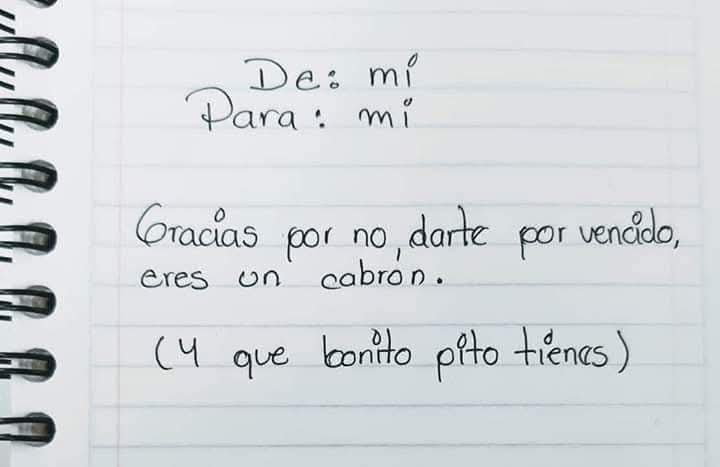 De: mí
Para: mi
Gracias por no, darte por vencido,
eres un cabron.
(Y que bonito pito tienes)